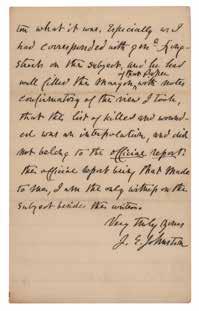 what it was. Especially as I
had corresponded with Genl Long-
street on the subject, and he had
well filled the margin of that paper, with notes
confirmatory of the view I took,
that the list of killed and wound-
ed was an interpolation, and did
not belong to the official report:
the official report being that made
to me, I am the only witness on the
subject besides the writer.
Very truly yours
J. E. Johnston